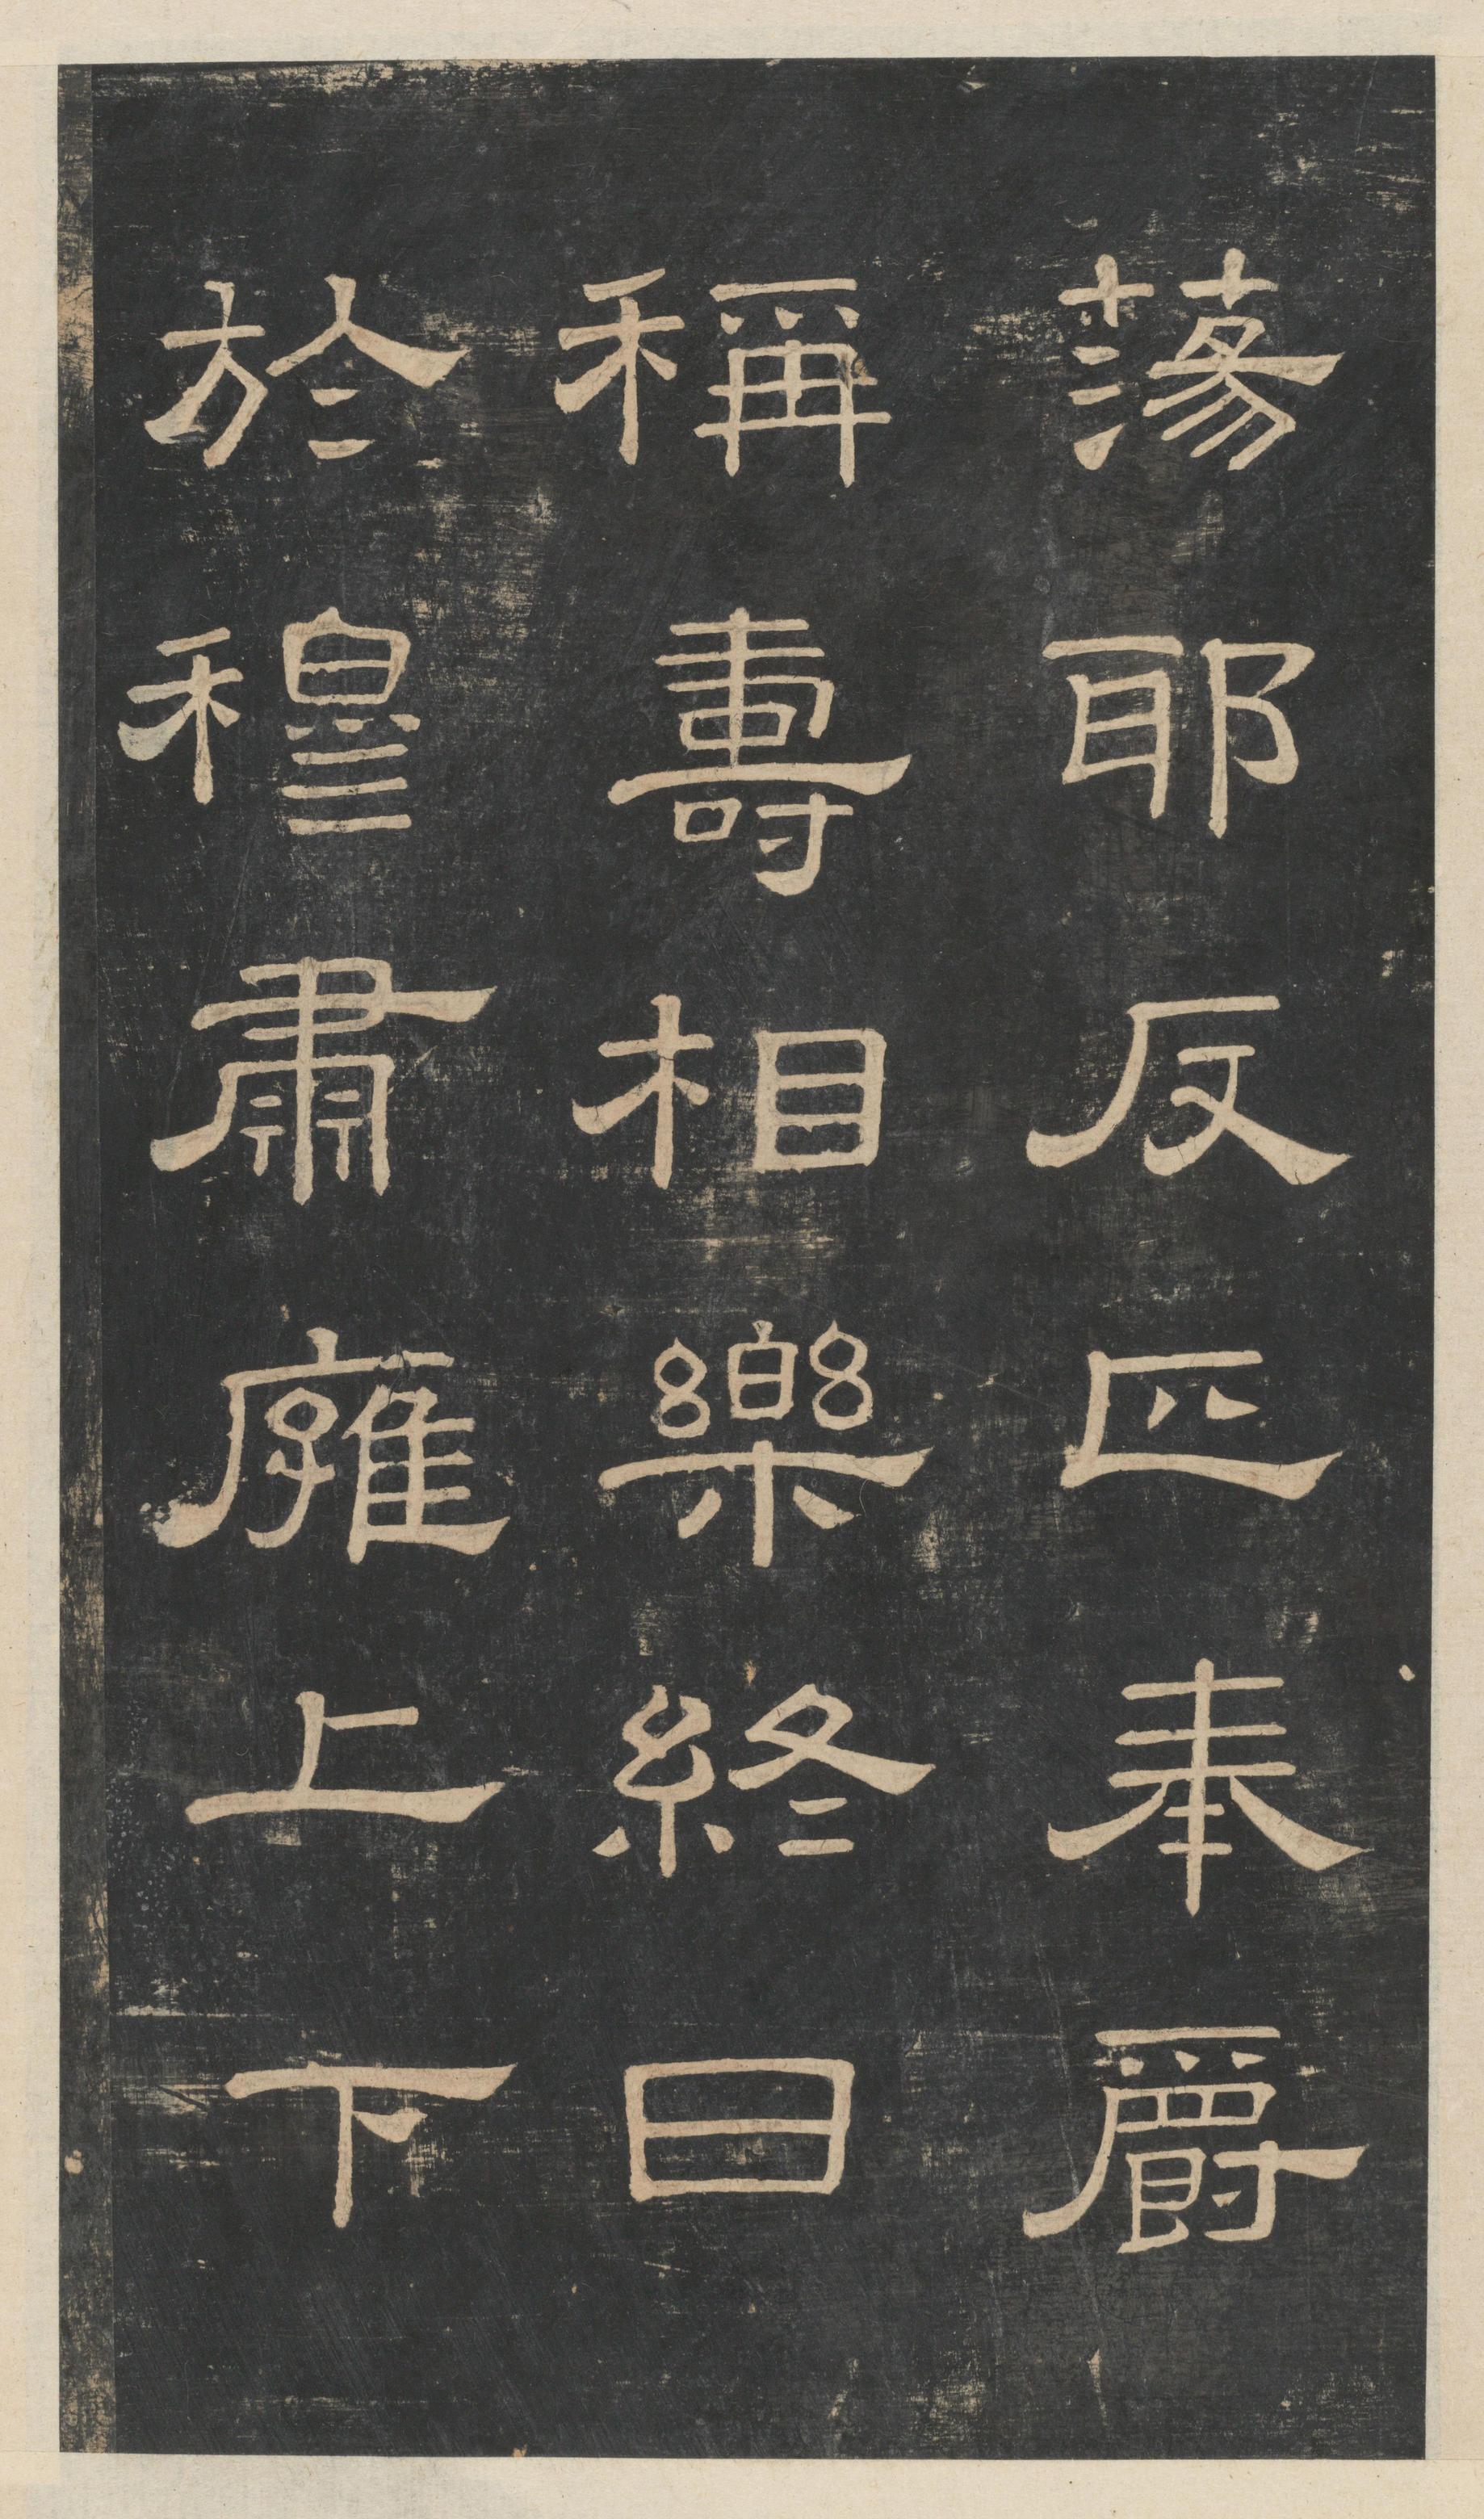 蕩耶反正奉爵
稱壽相樂終日
於穆肅雍上下